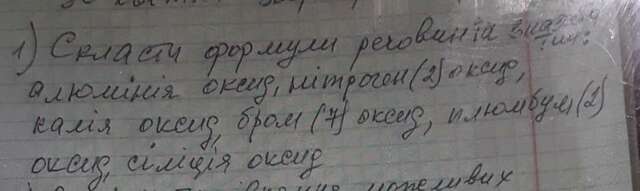 1) Скласти формули речовин та вказати тип:
алюмінія оксид, нітроген (2) оксид,
калія оксид, бром (7) оксид, плюмбум (2)
оксид, сіліція оксид
можливих